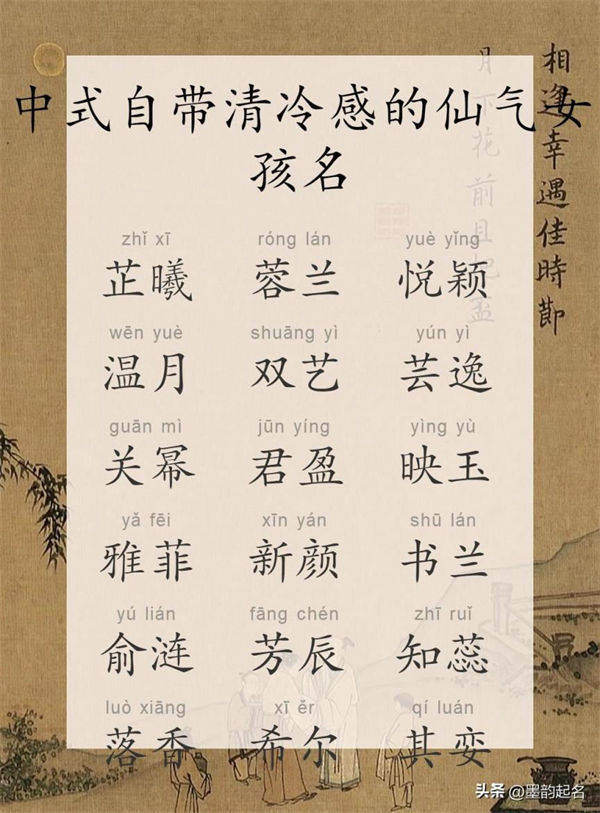 中式自带清冷感的仙气女
孩名
zhǐ xī róng lán yuè yǐng
芷曦 蓉兰 悦颖
wēn yuè shuāng yì yún yì
温月 双艺 芸逸
guān mì jūn yíng yìng yù
关幂 君盈 映玉
yǎ fēi xīn yán shū lán
雅菲 新颜 书兰
yú lián fāng chén zhī ruǐ
俞涟 芳辰 知蕊
luò xiāng xī ěr qí luán
落香 希尔 其娈
相逢幸遇佳時節
月下花前且把盃
头条 @墨韵起名